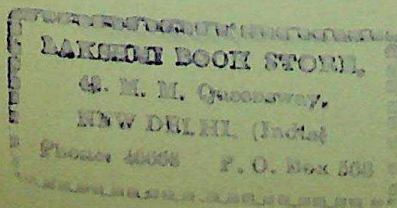 LAKSHMI BOOK STORE,
42. M. M. Queensway,
NEW DELHI. (India)
Phone: P. O. Box